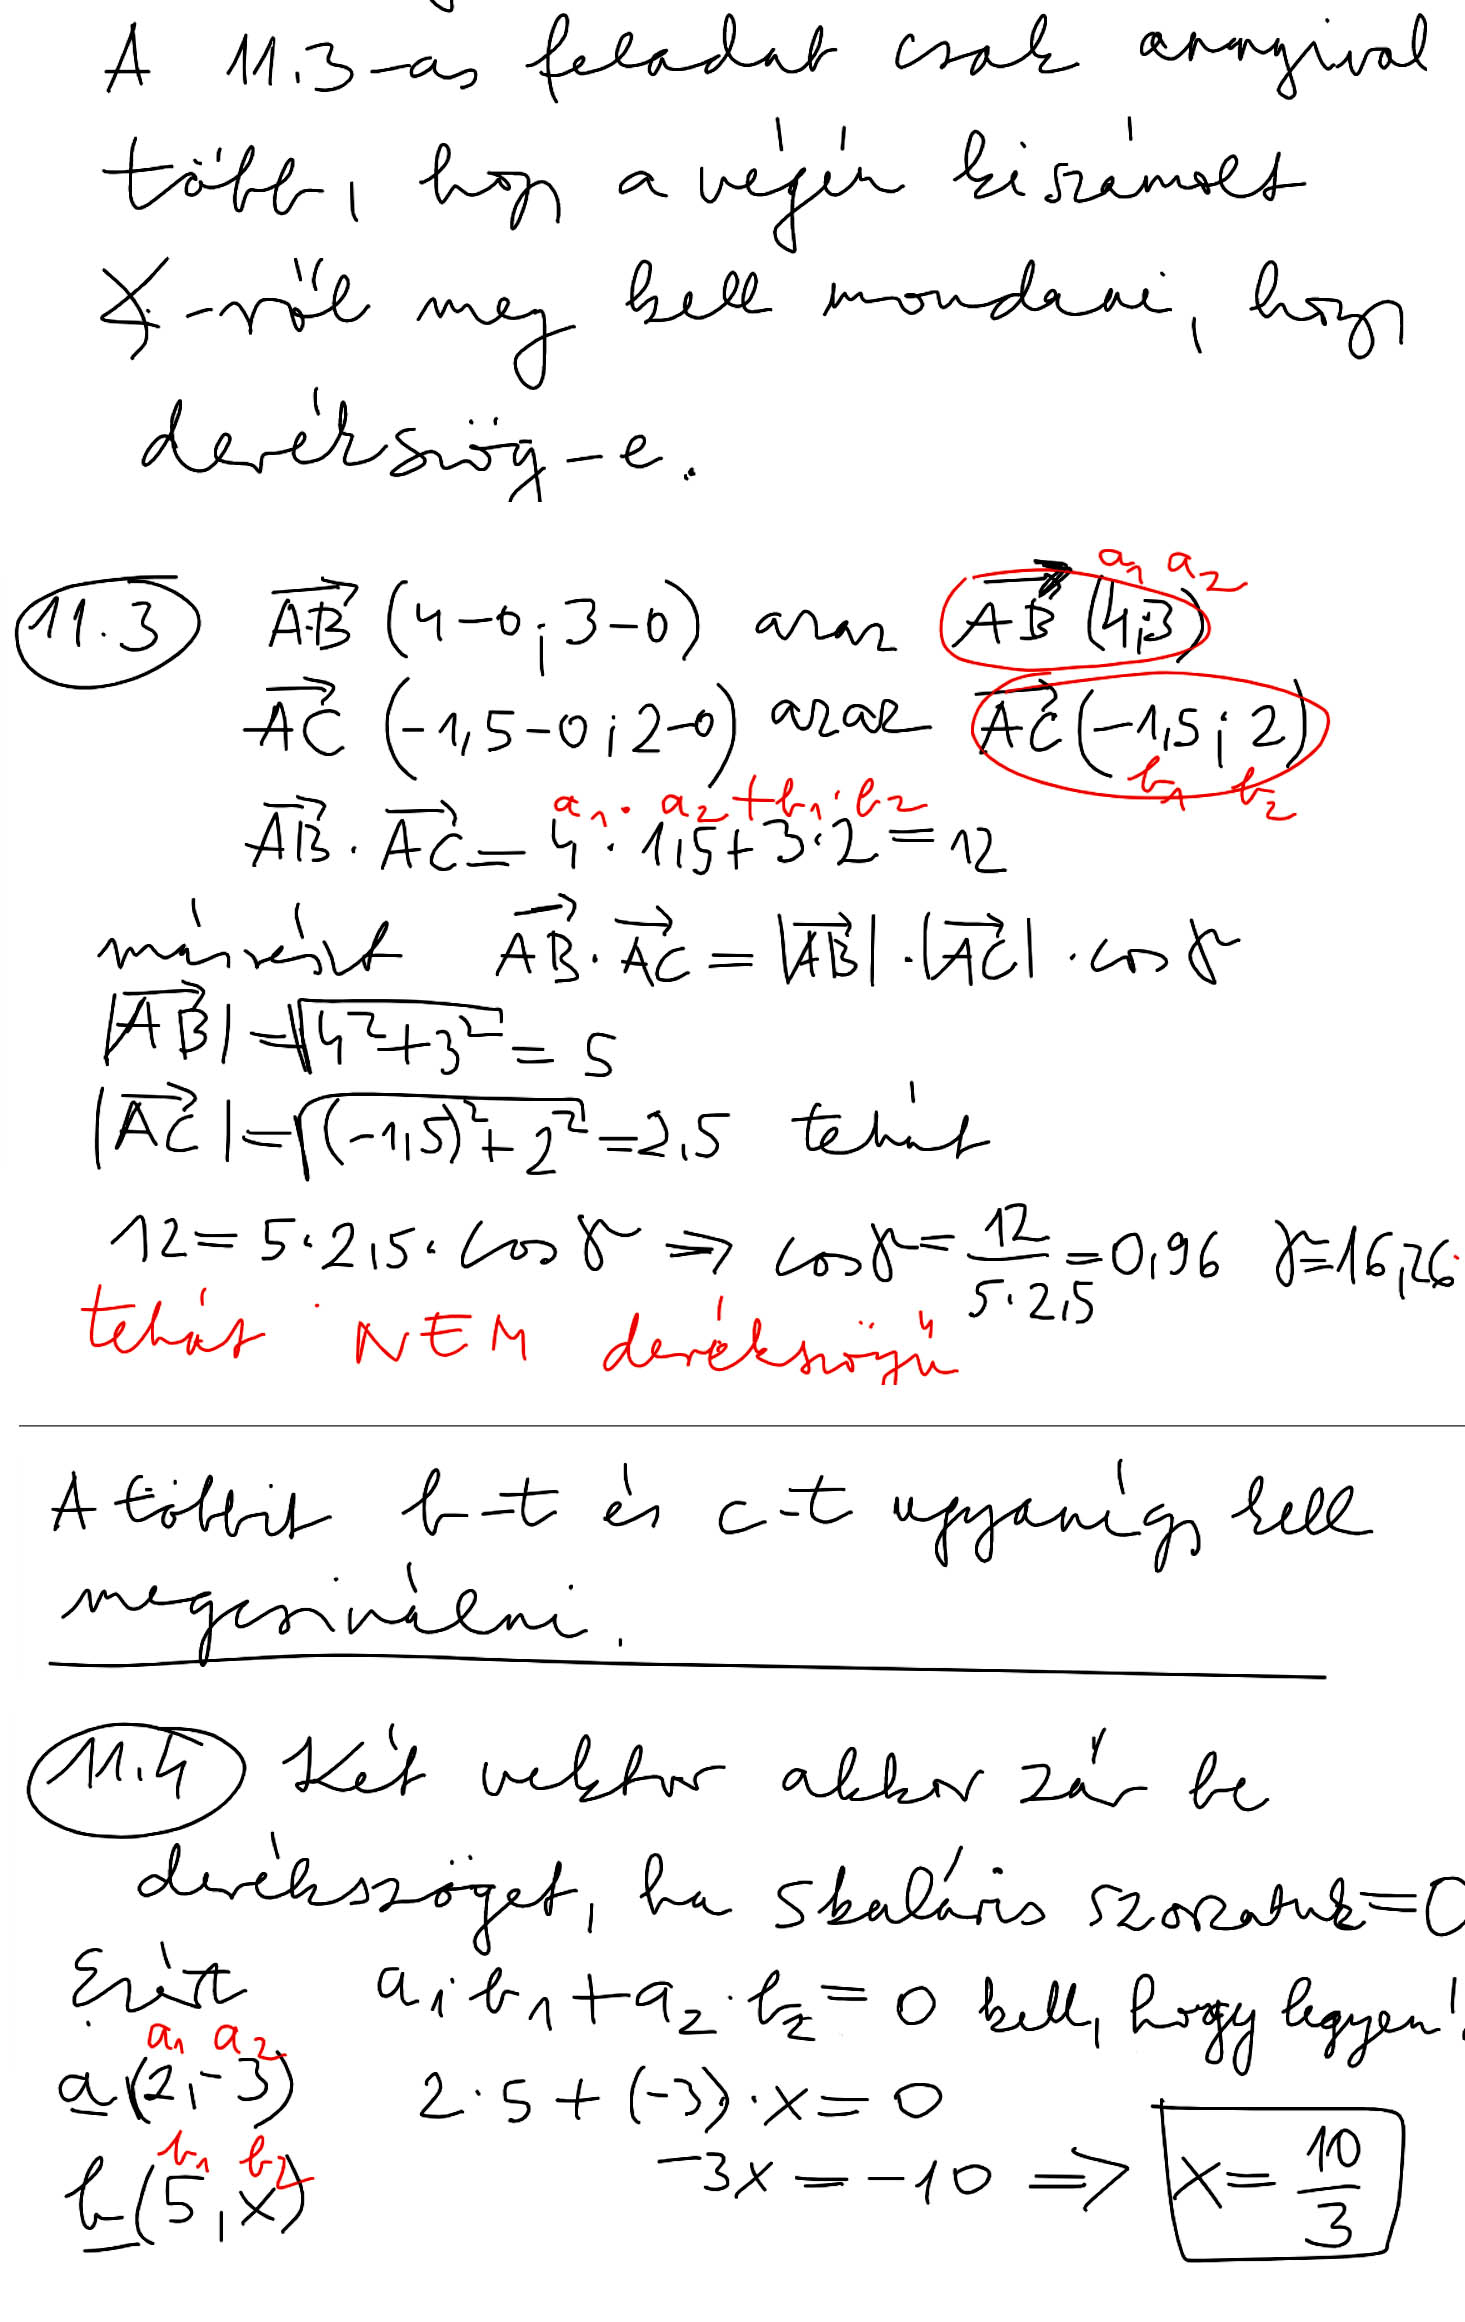 A 11.3-as feladat csak annyival
több, hogy a végén kiszámolt
∡-ről meg kell mondani, hogy
derékszög-e.
a₁ a₂
11.3 AB⃗ (4-0; 3-0) azaz AB⃗ (4;3)
AC⃗ (-1,5-0; 2-0) azaz AC⃗ (-1,5; 2)
b₁ b₂
a₁·a₂+b₁·b₂
AB⃗ · AC⃗ = 4 · 1,5 + 3·2 = 12
másrészt AB⃗ · AC⃗ = |AB⃗| · |AC⃗| · cos γ
|AB⃗| = √(4²+3²) = 5
|AC⃗| = √((-1,5)²+2²) = 2,5 tehát
12 = 5·2,5· cos γ ⇒ cos γ = 12/(5·2,5) = 0,96 γ=16,26
tehát NEM derékszögű
A többit b-t és c-t ugyanígy kell
megcsinálni.
11.4 Két vektor akkor zár be
derékszöget, ha skaláris szorzatuk=0
Ezért a₁·b₁+a₂·b₂=0 kell, hogy legyen!
a₁ a₂
a(2,-3) 2·5+(-3)·x=0
b₁ b₂
b(5,x) -3x=-10 ⇒ x=10/3